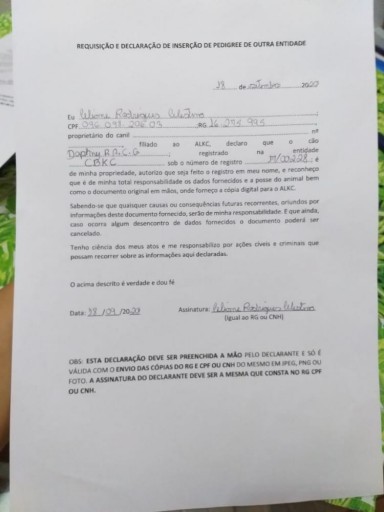 REQUISIÇÃO E DECLARAÇÃO DE INSERÇÃO DE PEDIGREE DE OUTRA ENTIDADE
28 de setembro 2023
Eu Rodrigues Celestino
CPF RG
proprietário do canil nº
filiado ao ALKC, declaro que o cão
Daphny registrado na entidade
CBKC sob o número de registro e
de minha propriedade, autorizo que seja feito o registro em meu nome, e reconheço
que é de minha total responsabilidade os dados fornecidos e a posse do animal bem
como o documento original em mãos, onde forneço a cópia digital para o ALKC.
Sabendo-se que quaisquer causas ou consequências futuras recorrentes, oriundos por
informações deste documento fornecido, serão de minha responsabilidade. E que ainda,
caso ocorra algum desencontro de dados fornecidos o documento poderá ser
cancelado.
Tenho ciência dos meus atos e me responsabilizo por ações cíveis e criminais que
possam recorrer sobre as informações aqui declaradas.
O acima descrito é verdade e dou fé
Data: 28 /09 /2023 Assinatura: Rodrigues Celestino
(Igual ao RG ou CNH)
OBS: ESTA DECLARAÇÃO DEVE SER PREENCHIDA A MÃO PELO DECLARANTE E SÓ É
VÁLIDA COM O ENVIO DAS CÓPIAS DO RG E CPF OU CNH DO MESMO EM JPEG, PNG OU
FOTO. A ASSINATURA DO DECLARANTE DEVE SER A MESMA QUE CONSTA NO RG CPF
OU CNH.